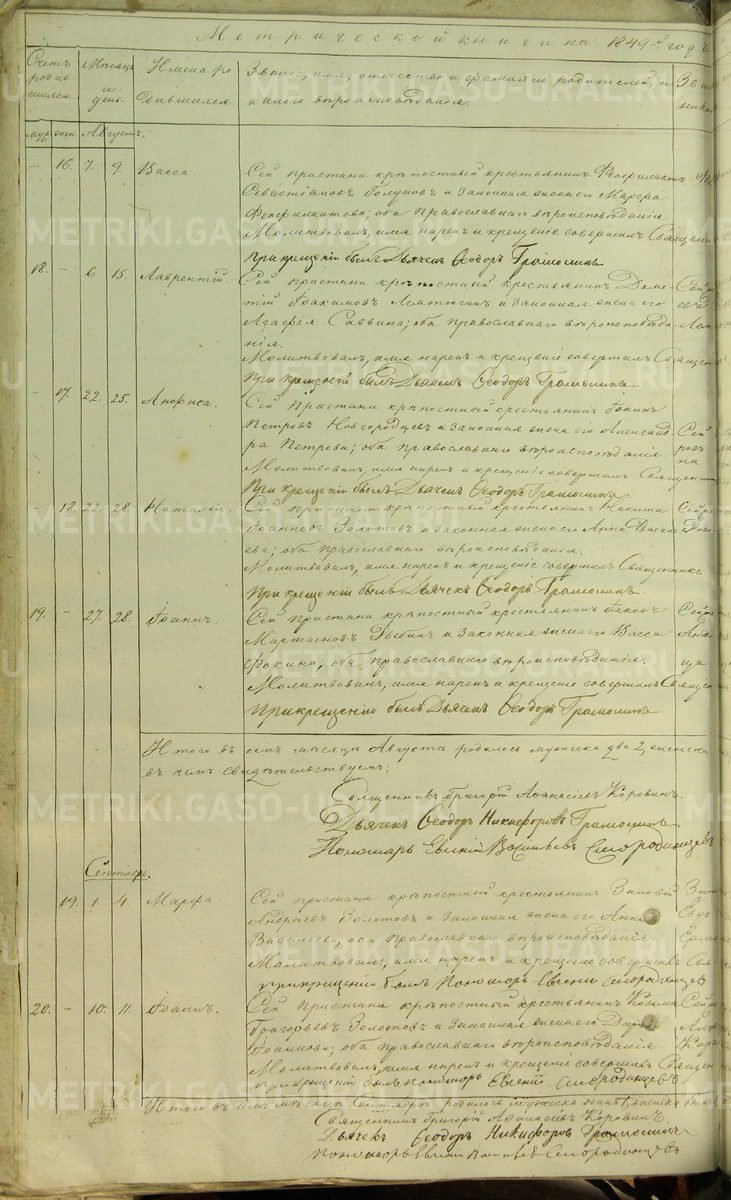 Метрической книги на 1849-й годъ
Счетъ родившихся.
Мѣсяцъ и день.
Имена родившихся.
Званіе, имя, отчество и фамилія родителей, и какого вѣроисповѣданія.
муж. жен. Августъ.
— 16. 7. 9. Васса
Сей пристани крѣпостный крестьянинъ Феофилактъ
Севастіановъ и законная жена его Марѳа
Феофилактова; оба православнаго вѣроисповѣданія.
Молитвовалъ, имя нарекъ и крещеніе совершилъ Священн
При крещеніи былъ Дьячекъ Ѳеодоръ Грамолинъ
18. — 6 15. Лаврентій.
Сей пристани крѣпостный крестьянинъ Доме-
тій Іоакимовъ и законная жена его
Агафія Саввина; оба православнаго вѣроисповѣда-
нія.
Молитвовалъ, имя нарекъ и крещеніе совершилъ Священ
При крещеніи былъ Дьячекъ Ѳеодоръ Грамолинъ
— 17. 22. 25. Анфиса.
Сей Пристани крѣпостный крестьянинъ Іоаннъ
Петровъ Новгородцевъ и законная жена его Александ-
ра Петрова; оба православнаго вѣроисповѣданія
Молитвовалъ, имя нарекъ и крещеніе совершилъ Священни
При крещеніи былъ Дьячекъ Ѳеодоръ Грамолинъ
18. 22. 28. Наталія.
Сей пристани крѣпостный крестьянинъ Никита
Іоанновъ Золотовъ и законная жена его Анна Васил
ева; оба православнаго вѣроисповѣданія.
Молитвовалъ, имя нарекъ и крещеніе совершилъ Священникъ
При крещеніи былъ Дьячекъ Ѳеодоръ Грамолинъ.
19. — 27. 28. Іоаннъ.
Сей пристани крѣпостный крестьянинъ Іаковъ
Мартыновъ и законная жена его Васса
Фокина; оба православнаго вѣроисповѣданія.
Молитвовалъ, имя нарекъ и крещеніе совершилъ Священ
При крещеніи былъ Дьячекъ Ѳеодоръ Грамолинъ
Итого въ семъ мѣсяцѣ Августѣ родилось мужеска два 2, женска
въ чемъ свидѣтельствуемъ:
Священникъ Григорій Аѳанасіевъ Коровинъ.
Дьячекъ Ѳеодоръ Никифоровъ Грамолинъ
Пономарь Евгеній Васильевъ Смородинцевъ
Сентябрь.
19. 1. 4. Марѳа
Сей пристани крѣпостный крестьянинъ Зиновій
Андреевъ Золотовъ и законная жена его Анна
Васильева, оба православнаго вѣроисповѣданія.
Молитвовалъ, имя нарекъ и крещеніе совершилъ Свя
при крещеніи былъ Пономарь Евгеній Смородинцевъ
20. — 10. 11. Іоаннъ.
Сей пристани крѣпостный крестьянинъ Козьма
Григорьевъ Золотовъ и законная жена его
Іоаннова; оба православнаго вѣроисповѣданія.
Молитвовалъ, имя нарекъ и крещеніе совершилъ Священ
при крещеніи былъ пономарь Евгеній Смородинцевъ
Итого въ семъ мѣсяцѣ Сентябрѣ родилось мужеска одинъ, женска
Священникъ Григорій Аѳанасіевъ Коровинъ
Дьячекъ Ѳеодоръ Никифоровъ Грамолинъ
Пономарь Евгеній Васильевъ Смородинцевъ
METRIKI.GASO-URAL.RU